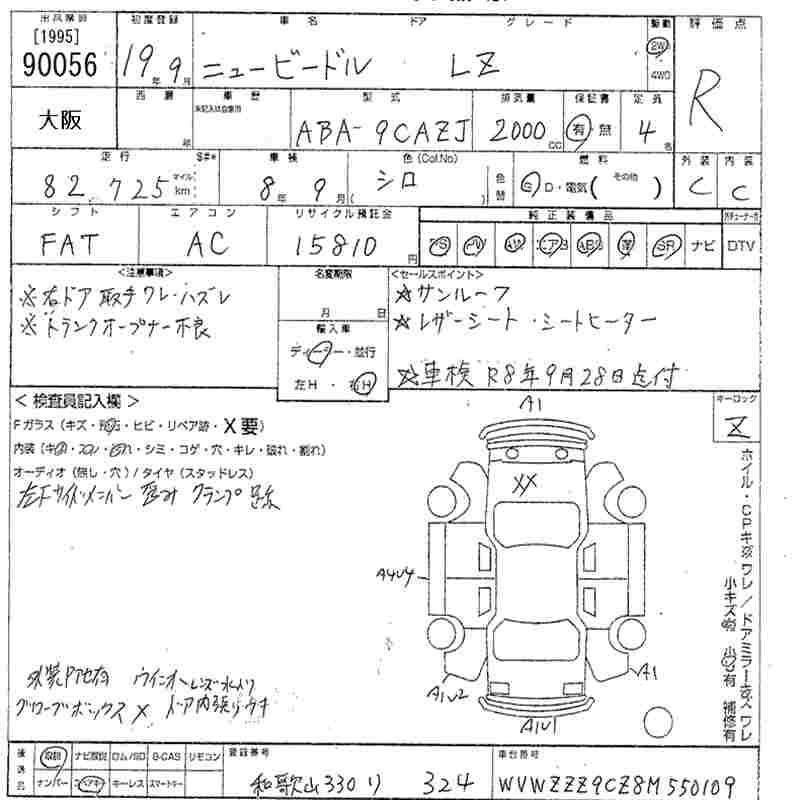 出品番号
[1995]
90056
大阪
初度登録
19年9月
車名 ドア グレード
ニュービードル LZ
駆動
2WD
4WD
評価点
R
西暦
年
車歴
未記入は自家用
型式
ABA-9CAZJ
排気量
2000
CC
保証書
有・無
定員
4名
走行
82,725
マイル
km
S#*
車検
8年9月
色(Col.No)
シロ
色替
燃料
G D・電気( その他 )
外装
C
内装
C
シフト
FAT
エアコン
AC
リサイクル預託金
15810円
純正装備品
PS PW AW エアB ABS 革 SR ナビ
DTV
<注意事項>
※右ドア取手ワレ・ハズレ
※トランクオープナー不良
名変期限
月 日
輸入車
ディーラー・並行
左H・右H
<セールスポイント>
☆サンルーフ
☆レザーシート・シートヒーター
☆車検 R8年9月28日迄付
<検査員記入欄>
Fガラス(キズ・飛石・ヒビ・リペア跡・X要)
内装(キズ・スレ・汚れ・シミ・コゲ・穴・キレ・破れ・割れ)
オーディオ(無し・穴)/タイヤ(スタッドレス)
左下サイドメンバー 歪み クランプ跡
キーロック
Z
A1
XX
A4U4
A1U2
A1
A1U1
ホイル・CPキズワレ/ドアミラーキズワレ
小キズ有 小凹有 補修有
外装Pアセ有 ウインカーレンズ水入り
グローブボックスX ドア内張りウキ
後送品
取説 ナビ取説 ロム/SD B-CAS リモコン
ナンバー スペアキー キーレス スマートキー
登録番号
和歌山330 り 324
車台番号
WVWZZZ9CZ8M550109